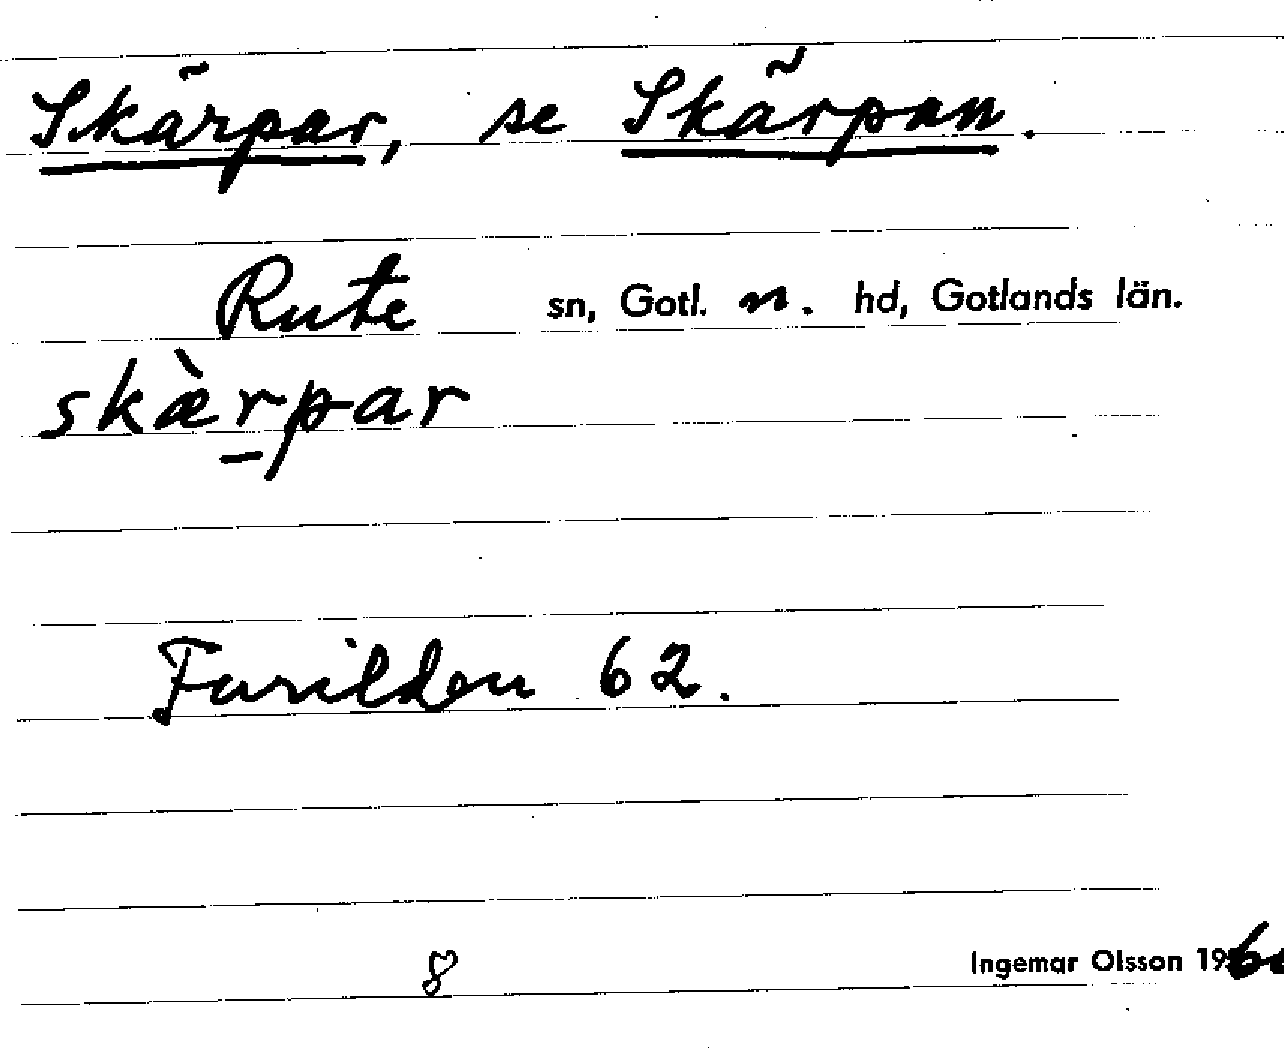 Skärpar, se Skärpan.
Rute sn, Gotl. n. hd, Gotlands län.
skæ̀rpar
Furilden 62.
8 Ingemar Olsson 196